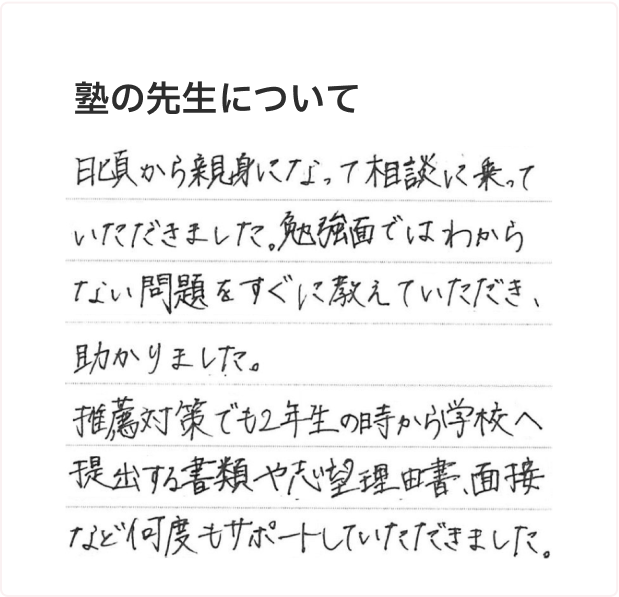 塾の先生について
日頃から親身になって相談に乗って
いただきました。勉強面ではわから
ない問題をすぐに教えていただき、
助かりました。
推薦対策でも2年生の時から学校へ
提出する書類や志望理由書、面接
など何度もサポートしていただきました。